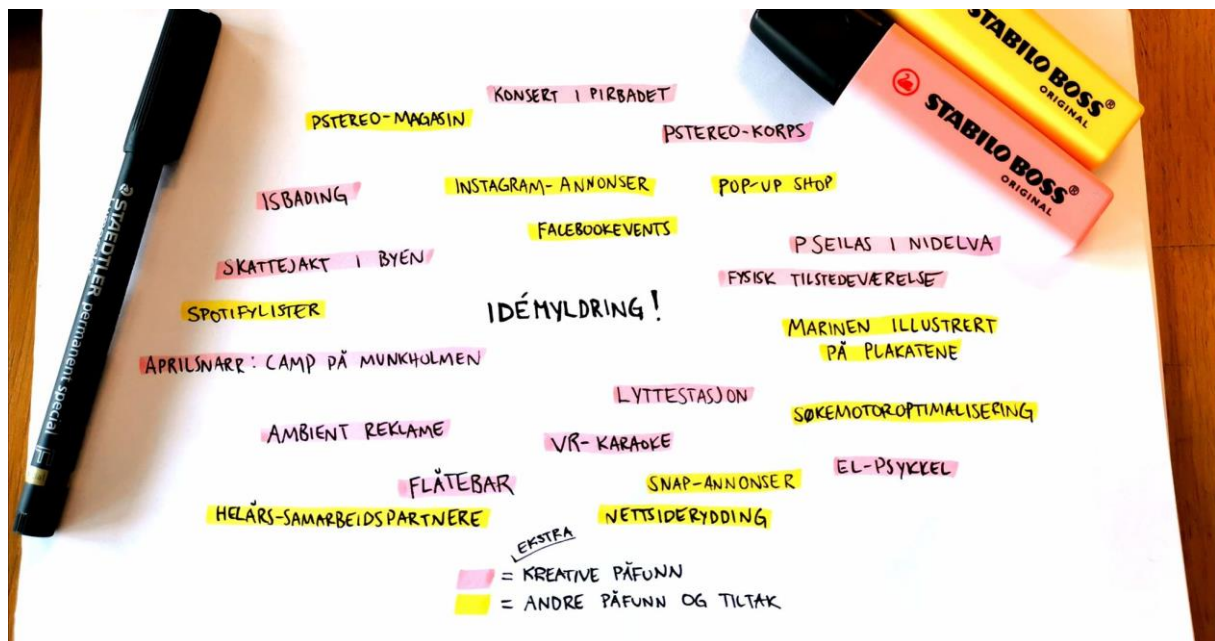 STABILO BOSS®
ORIGINAL
STABILO BOSS®
ORIGINAL
STAEDTLER permanent special
KONSERT I PIRBADET
PSTEREO-MAGASIN
PSTEREO-KORPS
ISBADING
INSTAGRAM-ANNONSER
POP-UP SHOP
FACEBOOKEVENTS
SKATTEJAKT I BYEN
PSEILAS I NIDELVA
FYSISK TILSTEDEVÆRELSE
SPOTIFYLISTER
IDÉMYLDRING!
MARINEN ILLUSTRERT
PÅ PLAKATENE
APRILSNARR: CAMP PÅ MUNKHOLMEN
LYTTESTASJON
SØKEMOTOROPTIMALISERING
AMBIENT REKLAME
VR-KARAOKE
EL-PSYKKEL
FLÅTEBAR
SNAP-ANNONSER
HELÅRS-SAMARBEIDSPARTNERE
NETTSIDERYDDING
EKSTRA
= KREATIVE PÅFUNN
= ANDRE PÅFUNN OG TILTAK